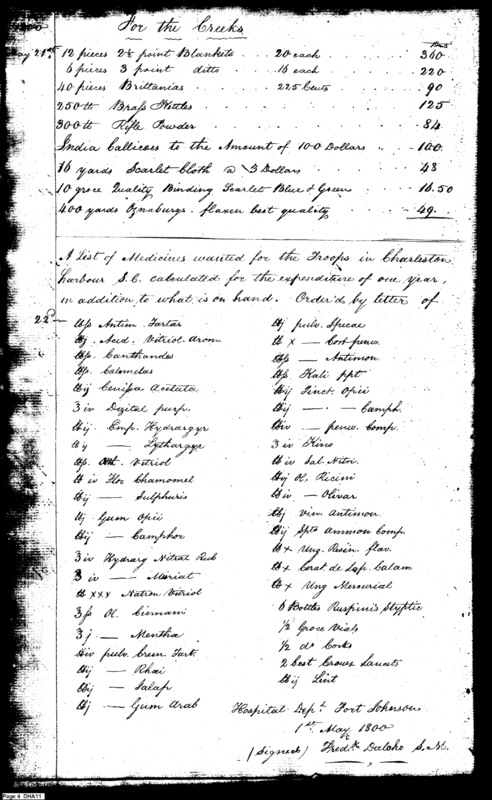 For the Creeks
May 21st 12 pieces 2½ point Blankets 30 each 360
6 pieces 3 point ditto 220
40 pieces Brittanias 225 Cents 90
250 lb Brass Kettles 125
300 lb Rifle Powder 84
India Callicoes to the Amount of 100 Dollars 100
16 yards Scarlet Cloth @ 3 Dollars 48
10 groce Quality Binding Scarlet Blue & Green 16.50
400 yards Oznaburgs flaxen best quality 49.
A List of Medicines wanted for the Troops in Charleston
harbour S.C. calculated for the expenditure of one year,
in addition to what is on hand. Order'd by letter of
22d
℔ß Antim. Tartar
℔j Acid. Vitriol Arom.
℔ß. Canthandes
℔ß. Calomelas
℔ij Cerussa Acetata
ʒ iv Digital purp.
℔ij Emp. Hydrargyr
℔ij — Lythargyr
℔ß. Vitriol
℔ iv Flor Chamomel
℔ij — Sulphuris
℔j Gum Opii
℔ij — Camphor
ʒ iv Hydrarg Nitrat Rub
ʒ iv — Muriat
℔ xxx Natron Vitriol
ʒß Ol. Cinnam
ʒj — Mentha
℔iv pulv. Crem. Tart.
℔ij — Rhai
℔ij — Jalap
℔j — Gum Arab
℔j pulv. Ipecac
℔ x — Cort. peruv.
℔ß — Antimon.
℔ß Kali ppt
℔ij Tinct. Opii
℔ij — Camph.
℔iv — peruv. Comp.
ʒ iv Kino
℔ iv Sal. Nitri
℔vj Ol. Ricini
℔iv — Olivar
℔j vin. Antimon.
℔ij Spts Ammon Comp.
℔ x Ung. Resin. flav.
℔x Cerat de Lap. Calam
℔ x Ung Mercurial
6 Bottles Ruspinis Styptic
½ Groce Vials
½ do Corks
2 best Crown Lancets
℔ij Lint
Hospital Dept. Fort Johnson
1st May 1800
(Signed) Fredk Dalcho S.M.
Page 4 DHA11